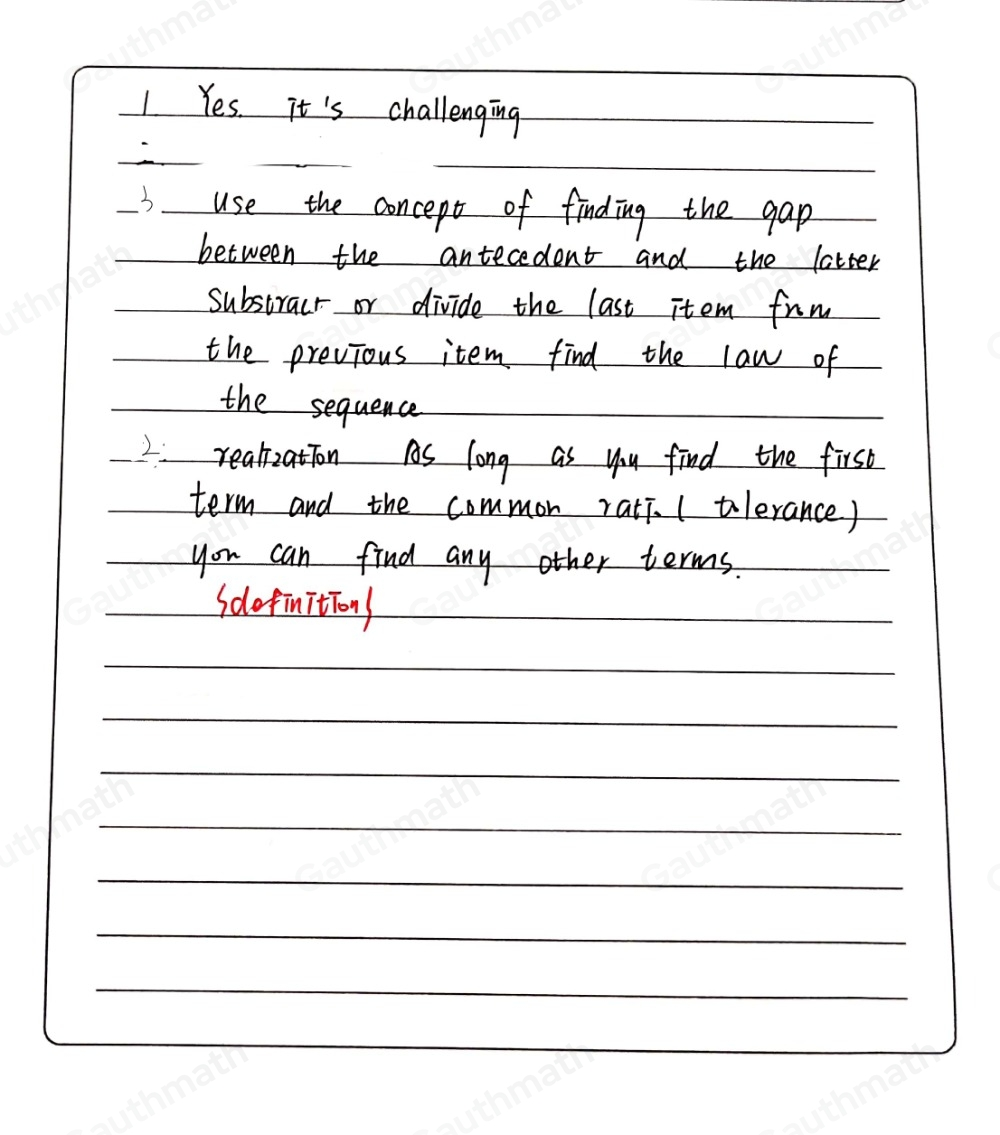 1. Yes. it's challenging
3 use the concept of finding the gap
between the antecedent and the latter
Substract or divide the last item from
the previous item find the law of
the sequence
2. realization As long as you find the first
term and the common ratio (tolerance)
you can find any other terms.
{definition}
Gauthmath